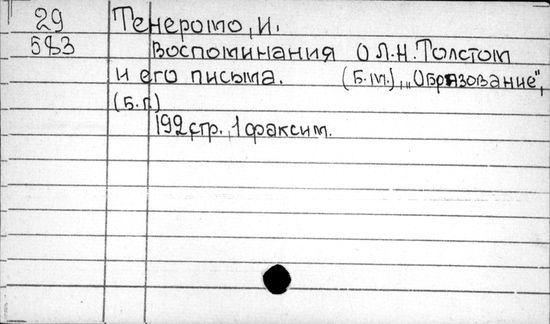 29 Тенерото, И.
583 Воспоминания О Л.Н. Толстом
и его письма. (Б.м.), „Образование",
(Б.г.)
192 стр., 1 факсим.